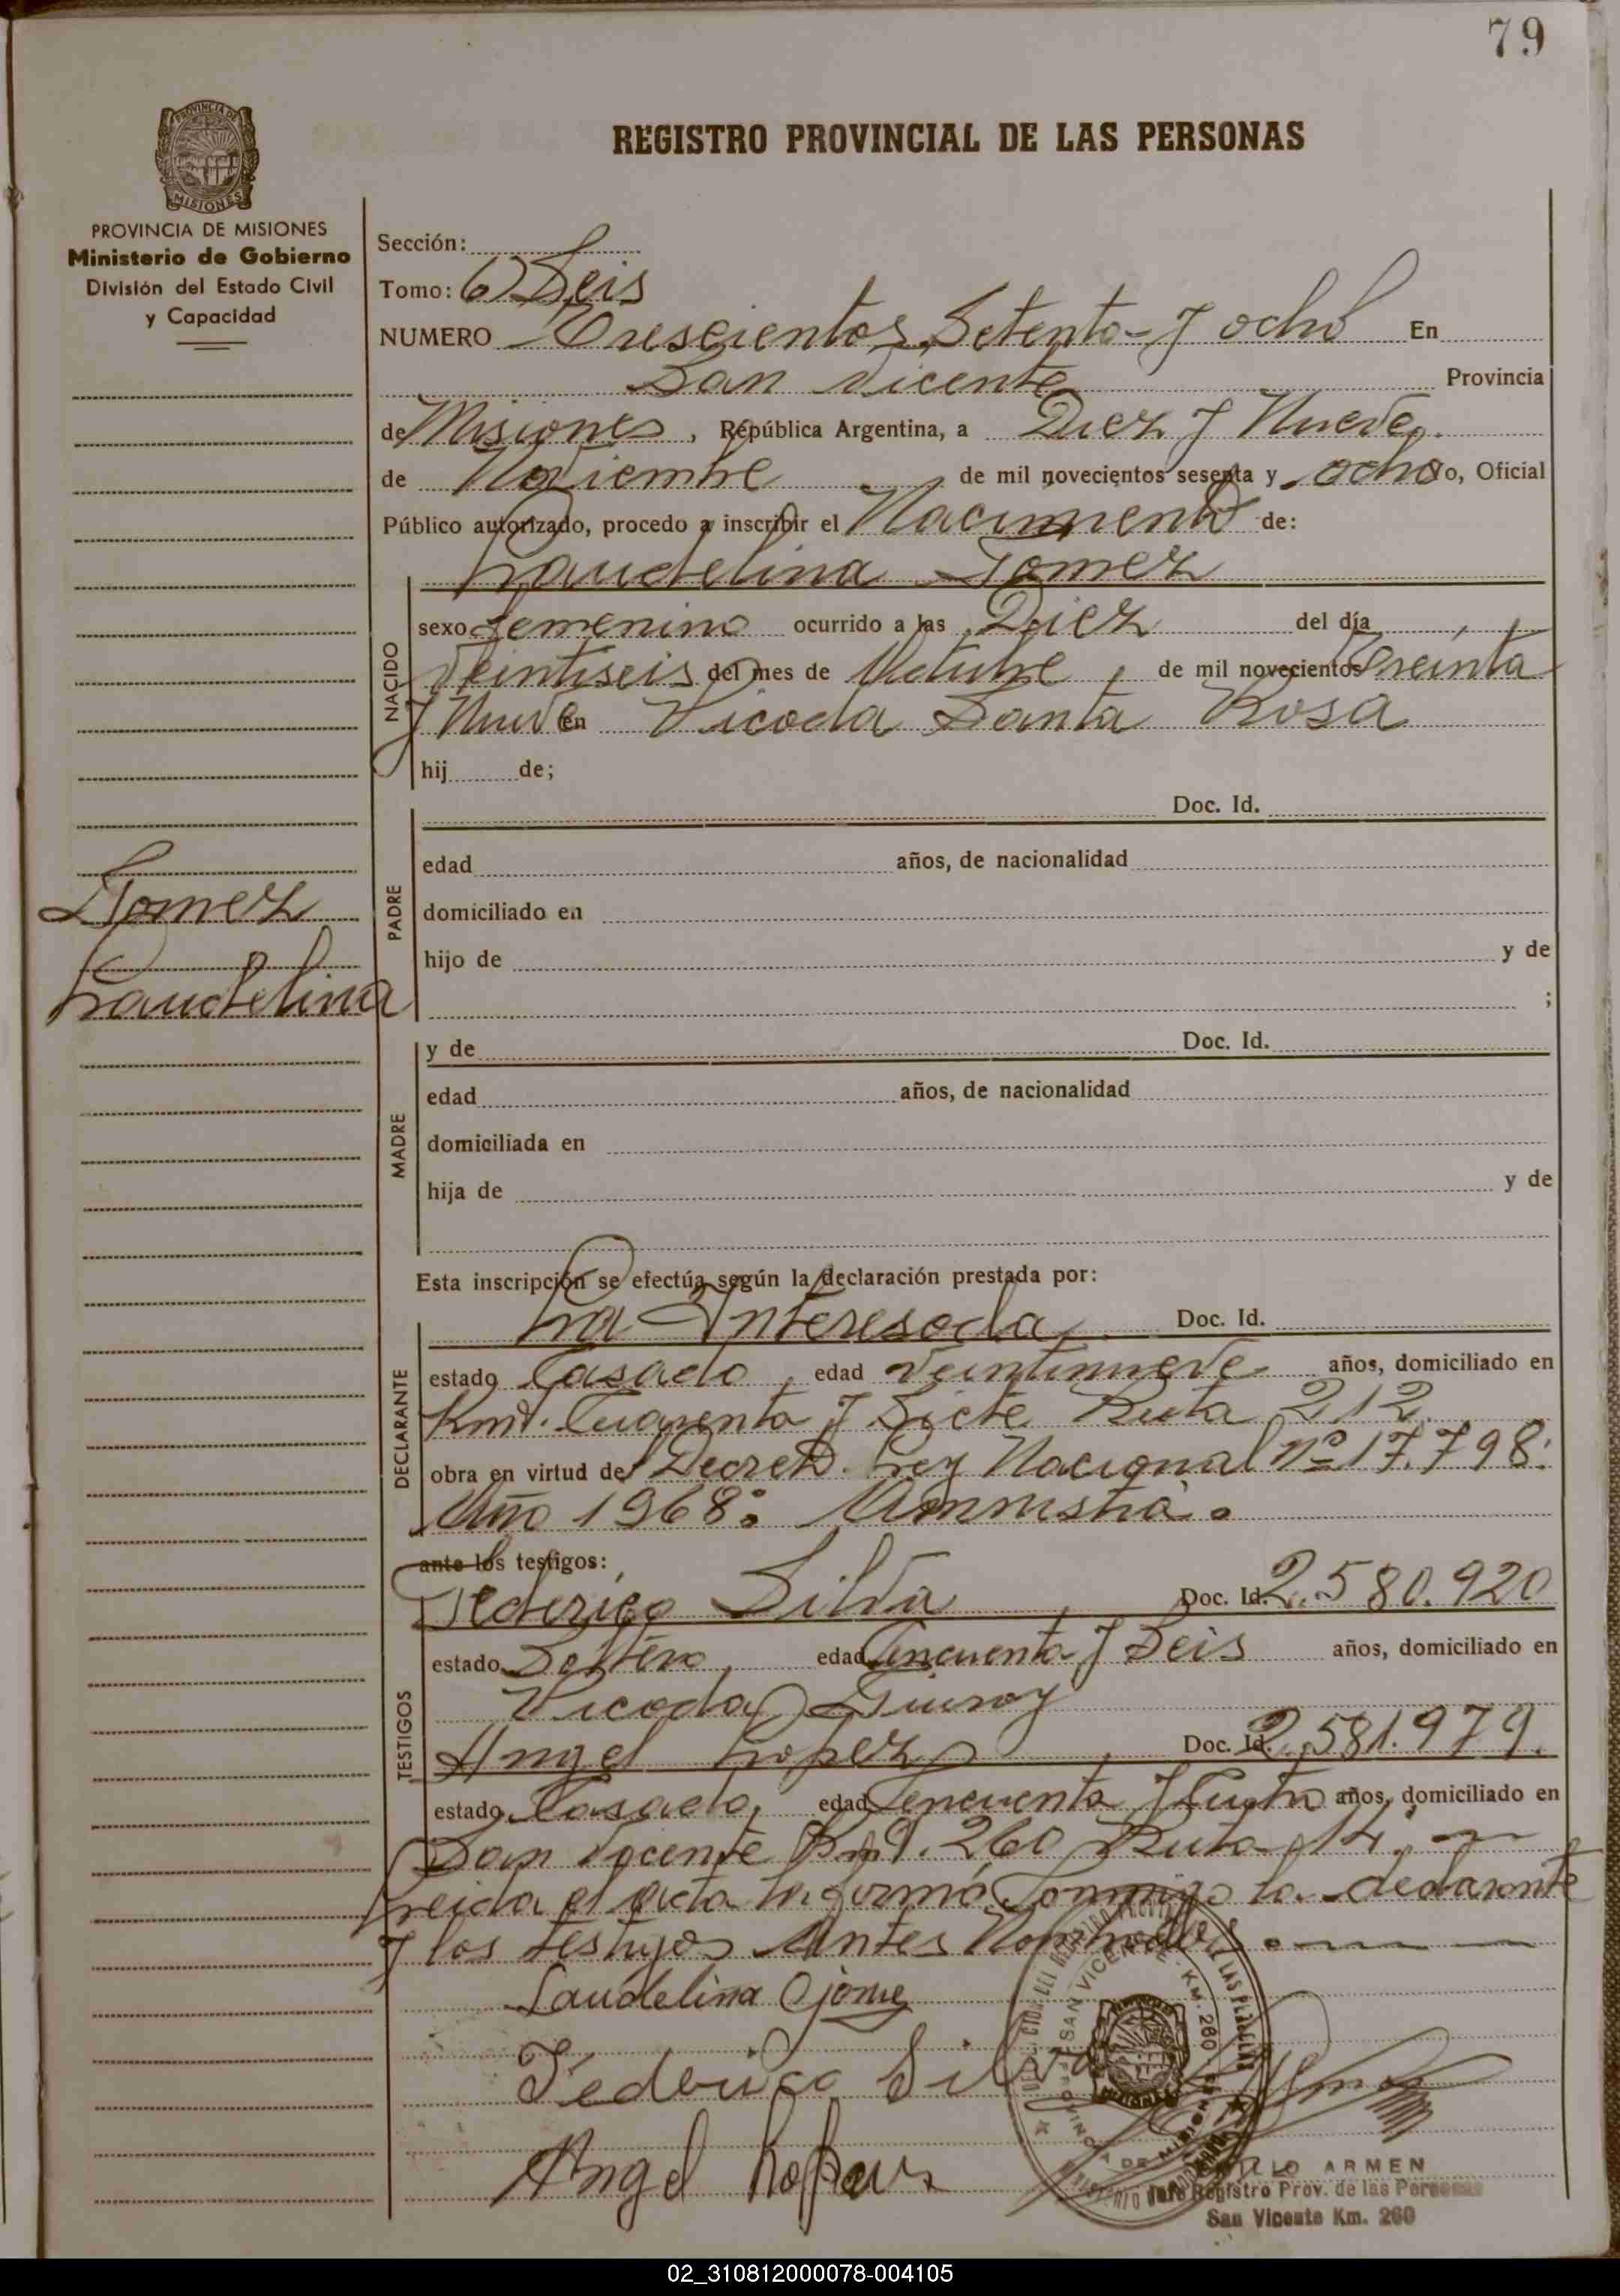 79
REGISTRO PROVINCIAL DE LAS PERSONAS
PROVINCIA DE MISIONES
MISIONES
PROVINCIA DE MISIONES
Ministerio de Gobierno
División del Estado Civil
y Capacidad
Sección:
Tomo: 6) Seis
NUMERO Trescientos Setenta y ocho En
San Vicente Provincia
de Misiones, República Argentina, a Diez y Nueve
de Noviembre de mil novecientos sesenta y ocho yo, Oficial
Público autorizado, procedo a inscribir el Nacimiento de:
Laudelina Gomez
NACIDO
sexo femenino ocurrido a las Diez del día
Veintiseis del mes de Octubre, de mil novecientos Treinta
y Nueve en Picada Santa Rosa
hij de;
PADRE
Doc. Id.
edad años, de nacionalidad
domiciliado en
hijo de y de
;
Gomez
Laudelina
MADRE
y de Doc. Id.
edad años, de nacionalidad
domiciliada en
hija de y de
Esta inscripción se efectúa según la declaración prestada por:
DECLARANTE
La Interesada Doc. Id.
estado Casada, edad Veintinueve años, domiciliado en
Kmt. Cuarenta y Siete Ruta 212
obra en virtud del Decreto Ley Nacional Nº 17.798:
Año 1968: Amnistia.
ante los testigos:
TESTIGOS
Federico Silva Doc. Id. 2.580.920
estado Soltero, edad Cincuenta y Seis años, domiciliado en
Picada
Angel Lopez Doc. Id. 2.581.979.
estado Casado, edad Cincuenta y años, domiciliado en
San Vicente Kmt. 260 Ruta 14.
Leida el acta la firma Conmigo la declarante
y los testigos Antes Nombrados.
Laudelina Gome
Federico Silva
Angel
SAN VICENTE - KM. 260
PROVINCIA DE MISIONES
ARMEN
Jefe Registro Prov. de las Personas
San Vicente Km. 260
02_310812000078-004105